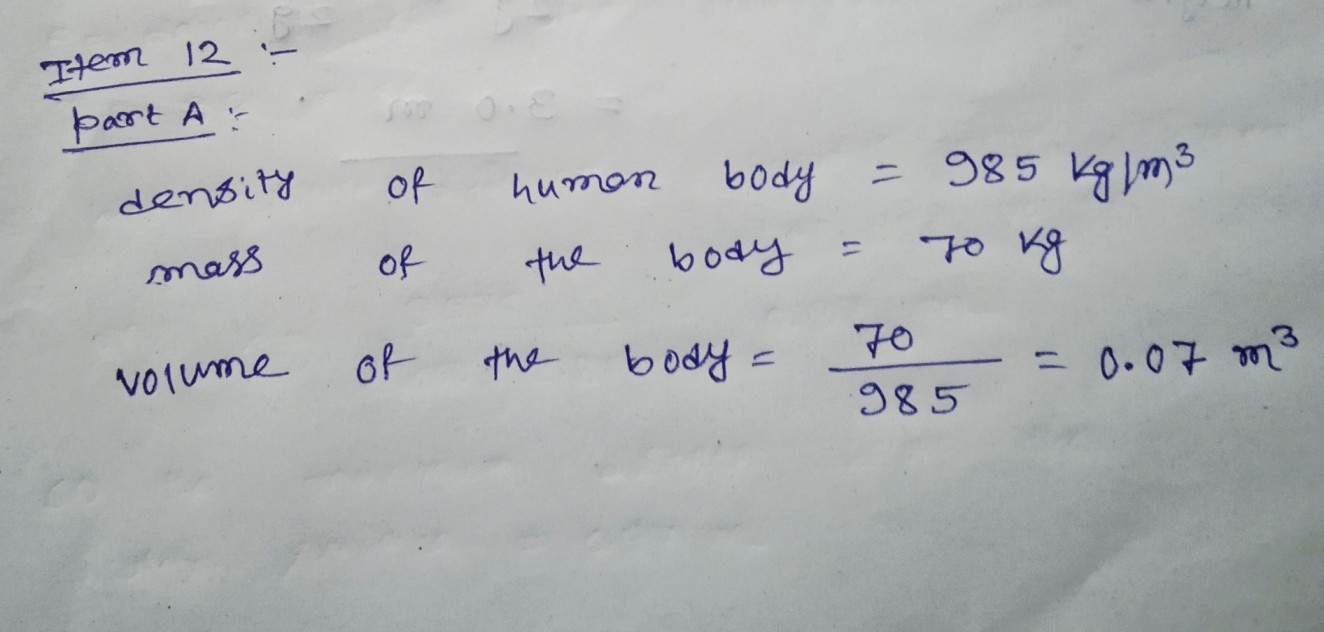 Item 12 :-
part A :-
density of human body = 985 kg/m³
mass of the body = 70 kg
volume of the body = 70/985 = 0.07 m³